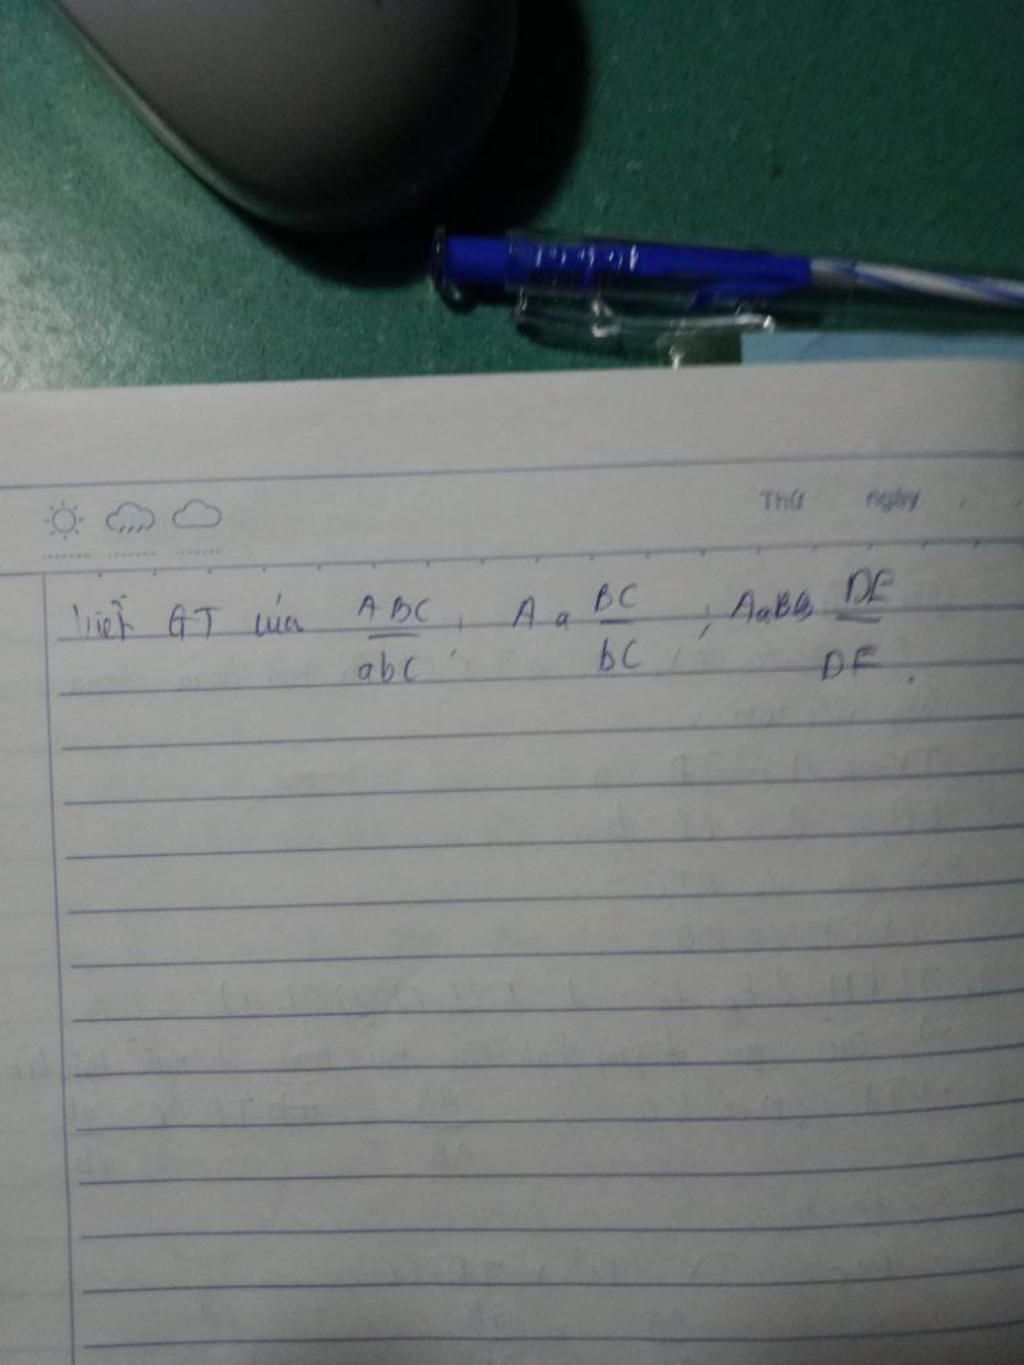 Thứ ngày
Viết GT của ABC/abC, Aa BC/bC, AaBb DE/DE.